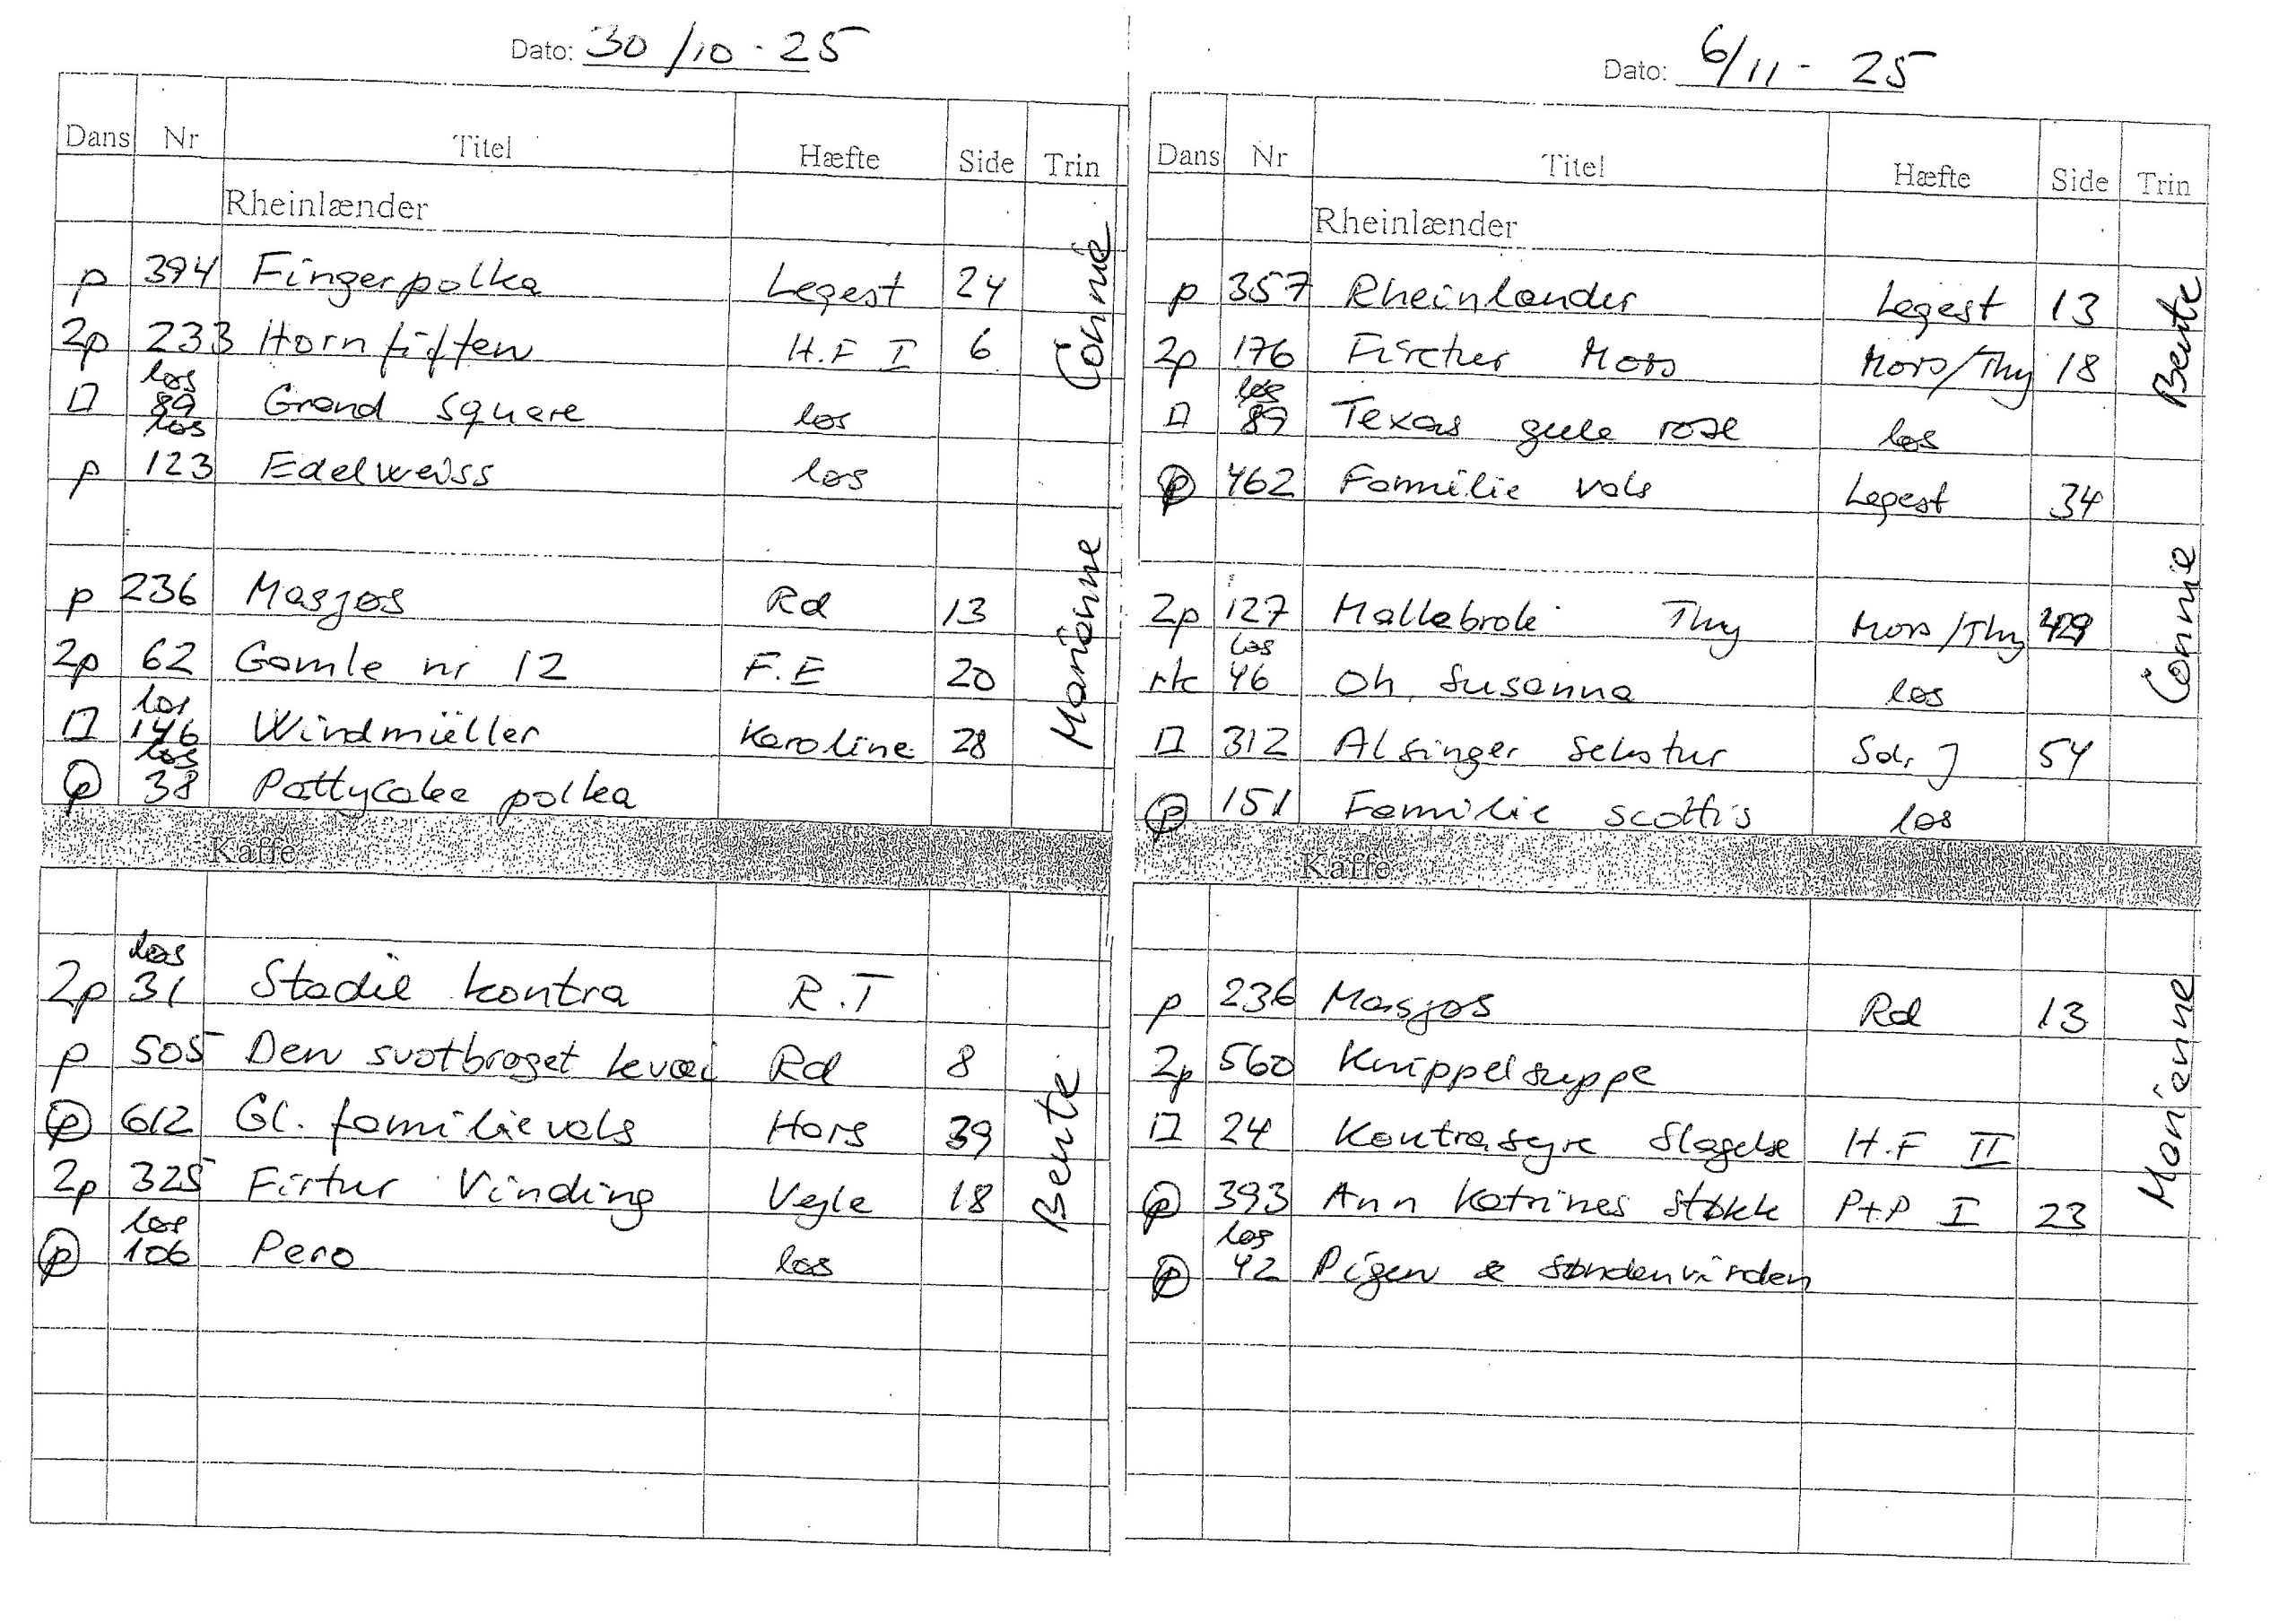 Dato: 30/10 - 25
Dans Nr Titel Hæfte Side Trin
Rheinlænder
p 394 Fingerpolka Legest 24
Connie
2p 233 Hornfiften H.F I 6
los
□ 89 Grand square los
los
p 123 Edelweiss los
p 236 Masjos Rd 13
Marianne
2p 62 Gamle nr 12 F.E 20
los
□ 146 Windmüeller Karoline 28
los
p 38 Pattycake polka
Kaffe
los
2p 31 Stadil kontra R.T
p 505 Den svotbroget kvæi Rd 8
Bente
p 612 Gl. familievals Hors 39
2p 325 Firtur Vinding Vejle 18
los
p 106 Pero los
Dato: 6/11 - 25
Dans Nr Titel Hæfte Side Trin
Rheinlænder
p 357 Rheinlander Legest 13
Bente
2p 176 Firetur Mors Mors/Thy 18
los
□ 89 Texas gule rose los
p 462 Familie vals Legest 34
2p 127 Mallebrok Thy Mors/Thy
Connie
los
rk 46 Oh, Susanna los
□ 312 Alsinger sekstur Sdr. J 54
p 151 Familie scottis los
Kaffe
p 236 Masjos Rd 13
Marianne
2p 560 Knippelsuppe
□ 24 Kontrasejre Slagelse H.F II
p 393 Ann Katrines Støkk P+P I 23
los
p 42 Pigen & søndenvinden